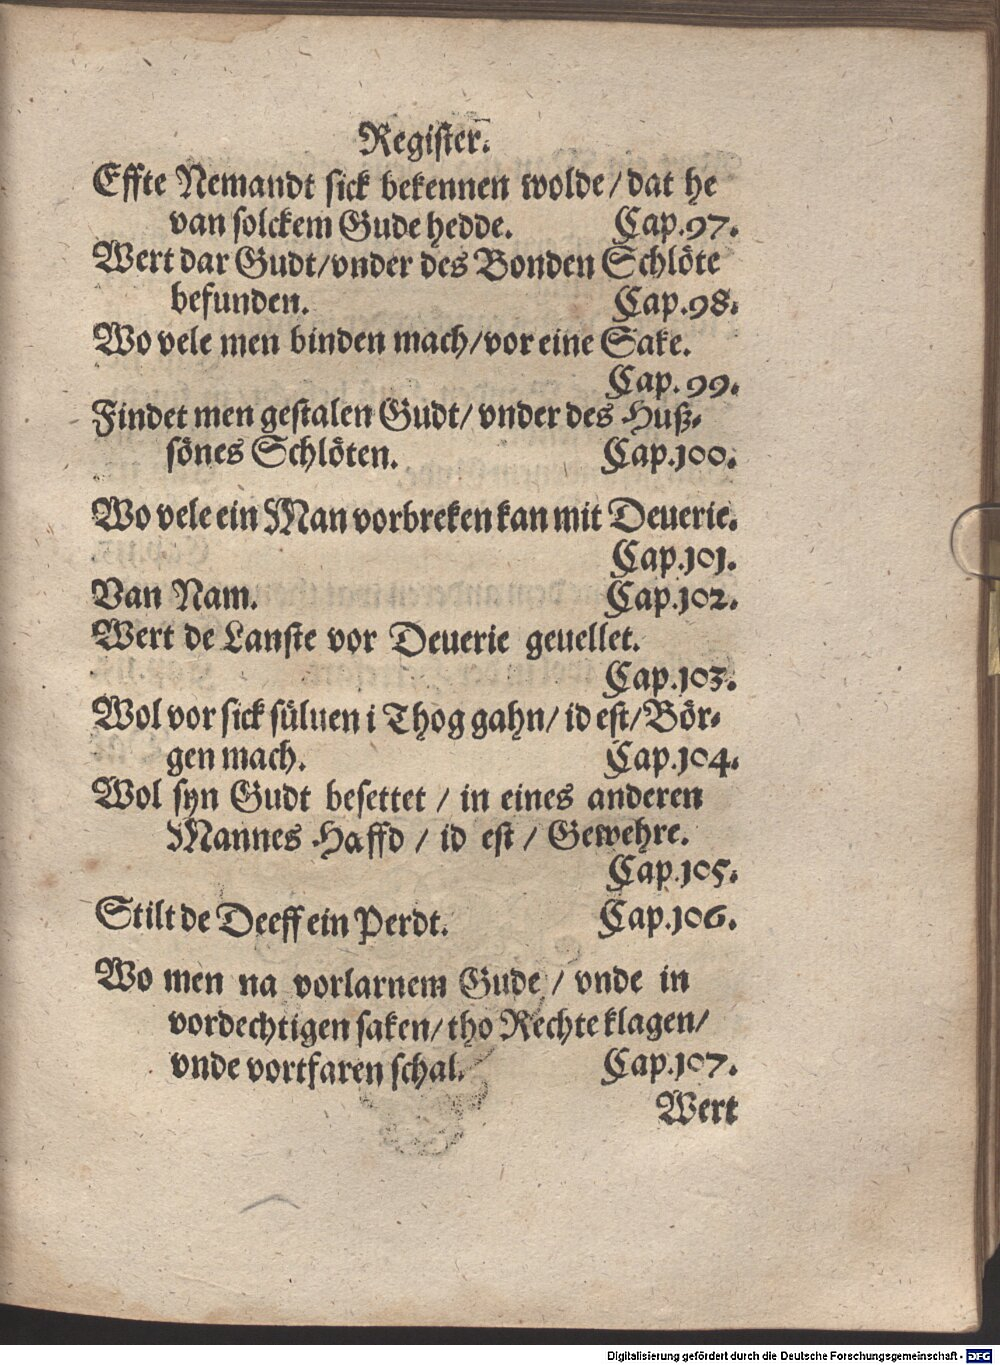 Regiſter.
Effte Nemandt ſick bekennen wolde/dat he
van ſolckem Gude hedde. Cap.97.
Wert dar Gudt/vnder des Bonden Schlöte
befunden. Cap.98.
Wo vele men binden mach/vor eine Sake.
Cap.99.
Findet men geſtalen Gudt/vnder des Huß-
ſönes Schlöten. Cap.100.
Wo vele ein Man vorbreken kan mit Deuerie.
Cap.101.
Van Nam. Cap.102.
Wert de Lanſte vor Deuerie geuellet.
Cap.103.
Wol vor ſick ſüluen i Thog gahn/id eſt/Bör-
gen mach. Cap.104.
Wol ſyn Gudt beſettet / in eines anderen
Mannes Haffd / id eſt / Gewehre.
Cap.105.
Stilt de Deeff ein Perdt. Cap.106.
Wo men na vorlarnem Gude / vnde in
vordechtigen ſaken/tho Rechte klagen/
vnde vortfaren ſchal. Cap.107.
Wert
Digitalisierung gefördert durch die Deutsche Forschungsgemeinschaft - DFG